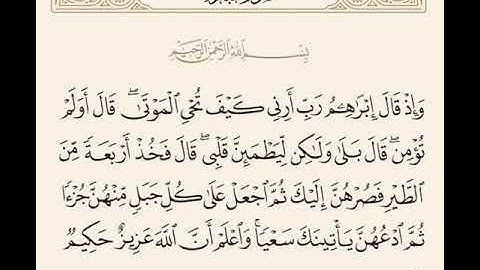 بِسْمِ اللَّهِ الرَّحْمَٰنِ الرَّحِيمِ
وَإِذْ قَالَ إِبْرَاهِـۧمُ رَبِّ أَرِنِي كَيْفَ تُحْيِ الْمَوْتَىٰ ۖ قَالَ أَوَلَمْ
تُؤْمِن ۖ قَالَ بَلَىٰ وَلَٰكِن لِّيَطْمَئِنَّ قَلْبِي ۖ قَالَ فَخُذْ أَرْبَعَةً مِّنَ
الطَّيْرِ فَصُرْهُنَّ إِلَيْكَ ثُمَّ اجْعَلْ عَلَىٰ كُلِّ جَبَلٍ مِّنْهُنَّ جُزْءًا
ثُمَّ ادْعُهُنَّ يَأْتِينَكَ سَعْيًا ۚ وَاعْلَمْ أَنَّ اللَّهَ عَزِيزٌ حَكِيمٌ